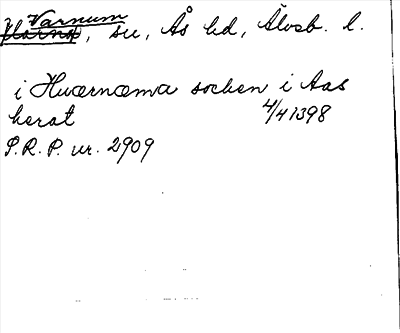 Varnum, sn, Ås hd, Älvsb. l.
i Hwærnæma socken i Aas
herat 4/4 1398
S.R.P. nr. 2909